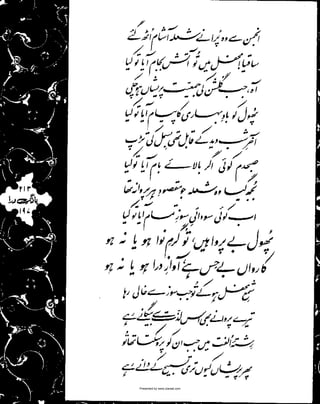 انجمن سے وہ پرانے شعلہ آشام اٹھ گئے
ساقیا! محفل میں تو آتش بجام آیا تو کیا
آہ، جب گلشن کی جمعیت پریشاں ہو چکی
پھول کو بادِ بہاری کا پیام آیا تو کیا
آخرِ شب دید کے قابل تھی بسمل کی تڑپ
صبحدم کوئی اگر بالائے بام آیا تو کیا
بجھ گیا وہ شعلہ جو مقصودِ ہر پروانہ تھا
اب کوئی سودائیِ سوزِ تمام آیا تو کیا
پھول بے پروا ہیں، تو گرمِ نوا ہو یا نہ ہو
کارواں بے حس ہے، آوازِ درا ہو یا نہ ہو
شمعِ محفل ہو کے تو جب سوز سے خالی رہا
تیرے پروانے بھی اس لذت سے بیگانے رہے
رشتۂ الفت میں جب ان کو پرو سکتا تھا تو
پھر پریشاں کیوں تری تسبیح کے دانے رہے
۲۱۳
بانگِ درا
۱۹۷
Presented by www.iqbalcyberlibrary.net